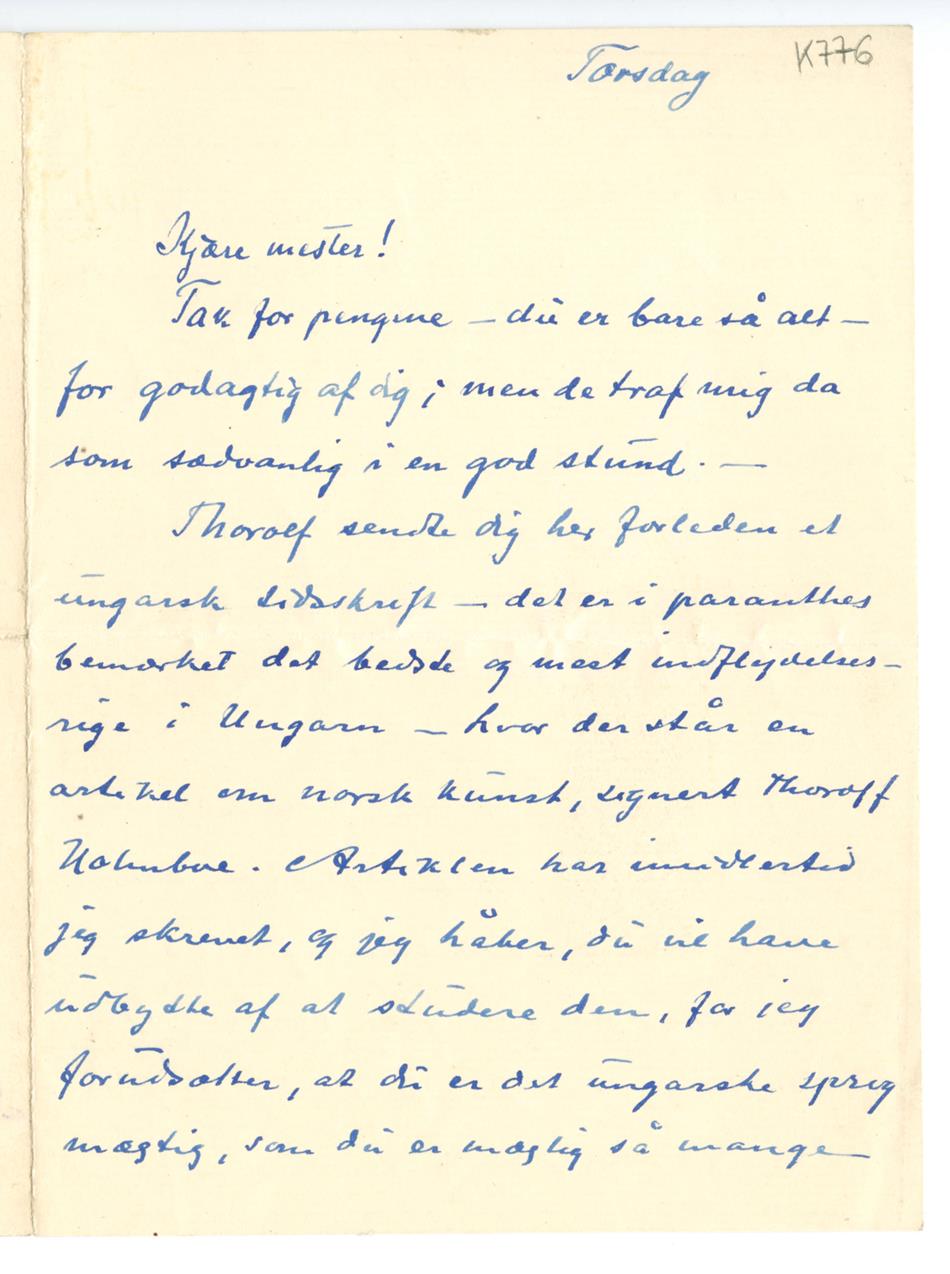 Torsdag
K776
Kjære mester!
Tak for pengene – du er bare så alt–
for godagtig af dig; men de traf mig da
som sædvanlig i en god stund. —
Thorolf sendte dig her forleden et
ungarsk tidsskrift – det er i paranthes
bemærket det bedste og mest indflydelses–
rige i Ungarn – hvor der står en
artikel om norsk kunst, signert Thorolf
Holmboe. Artiklen har imidlertid
jeg skrevet, og jeg håber, du vil have
udbytte af at studere den, for jeg
forudsætter, at du er det ungarske sprog
mægtig, som du er mægtig så mange